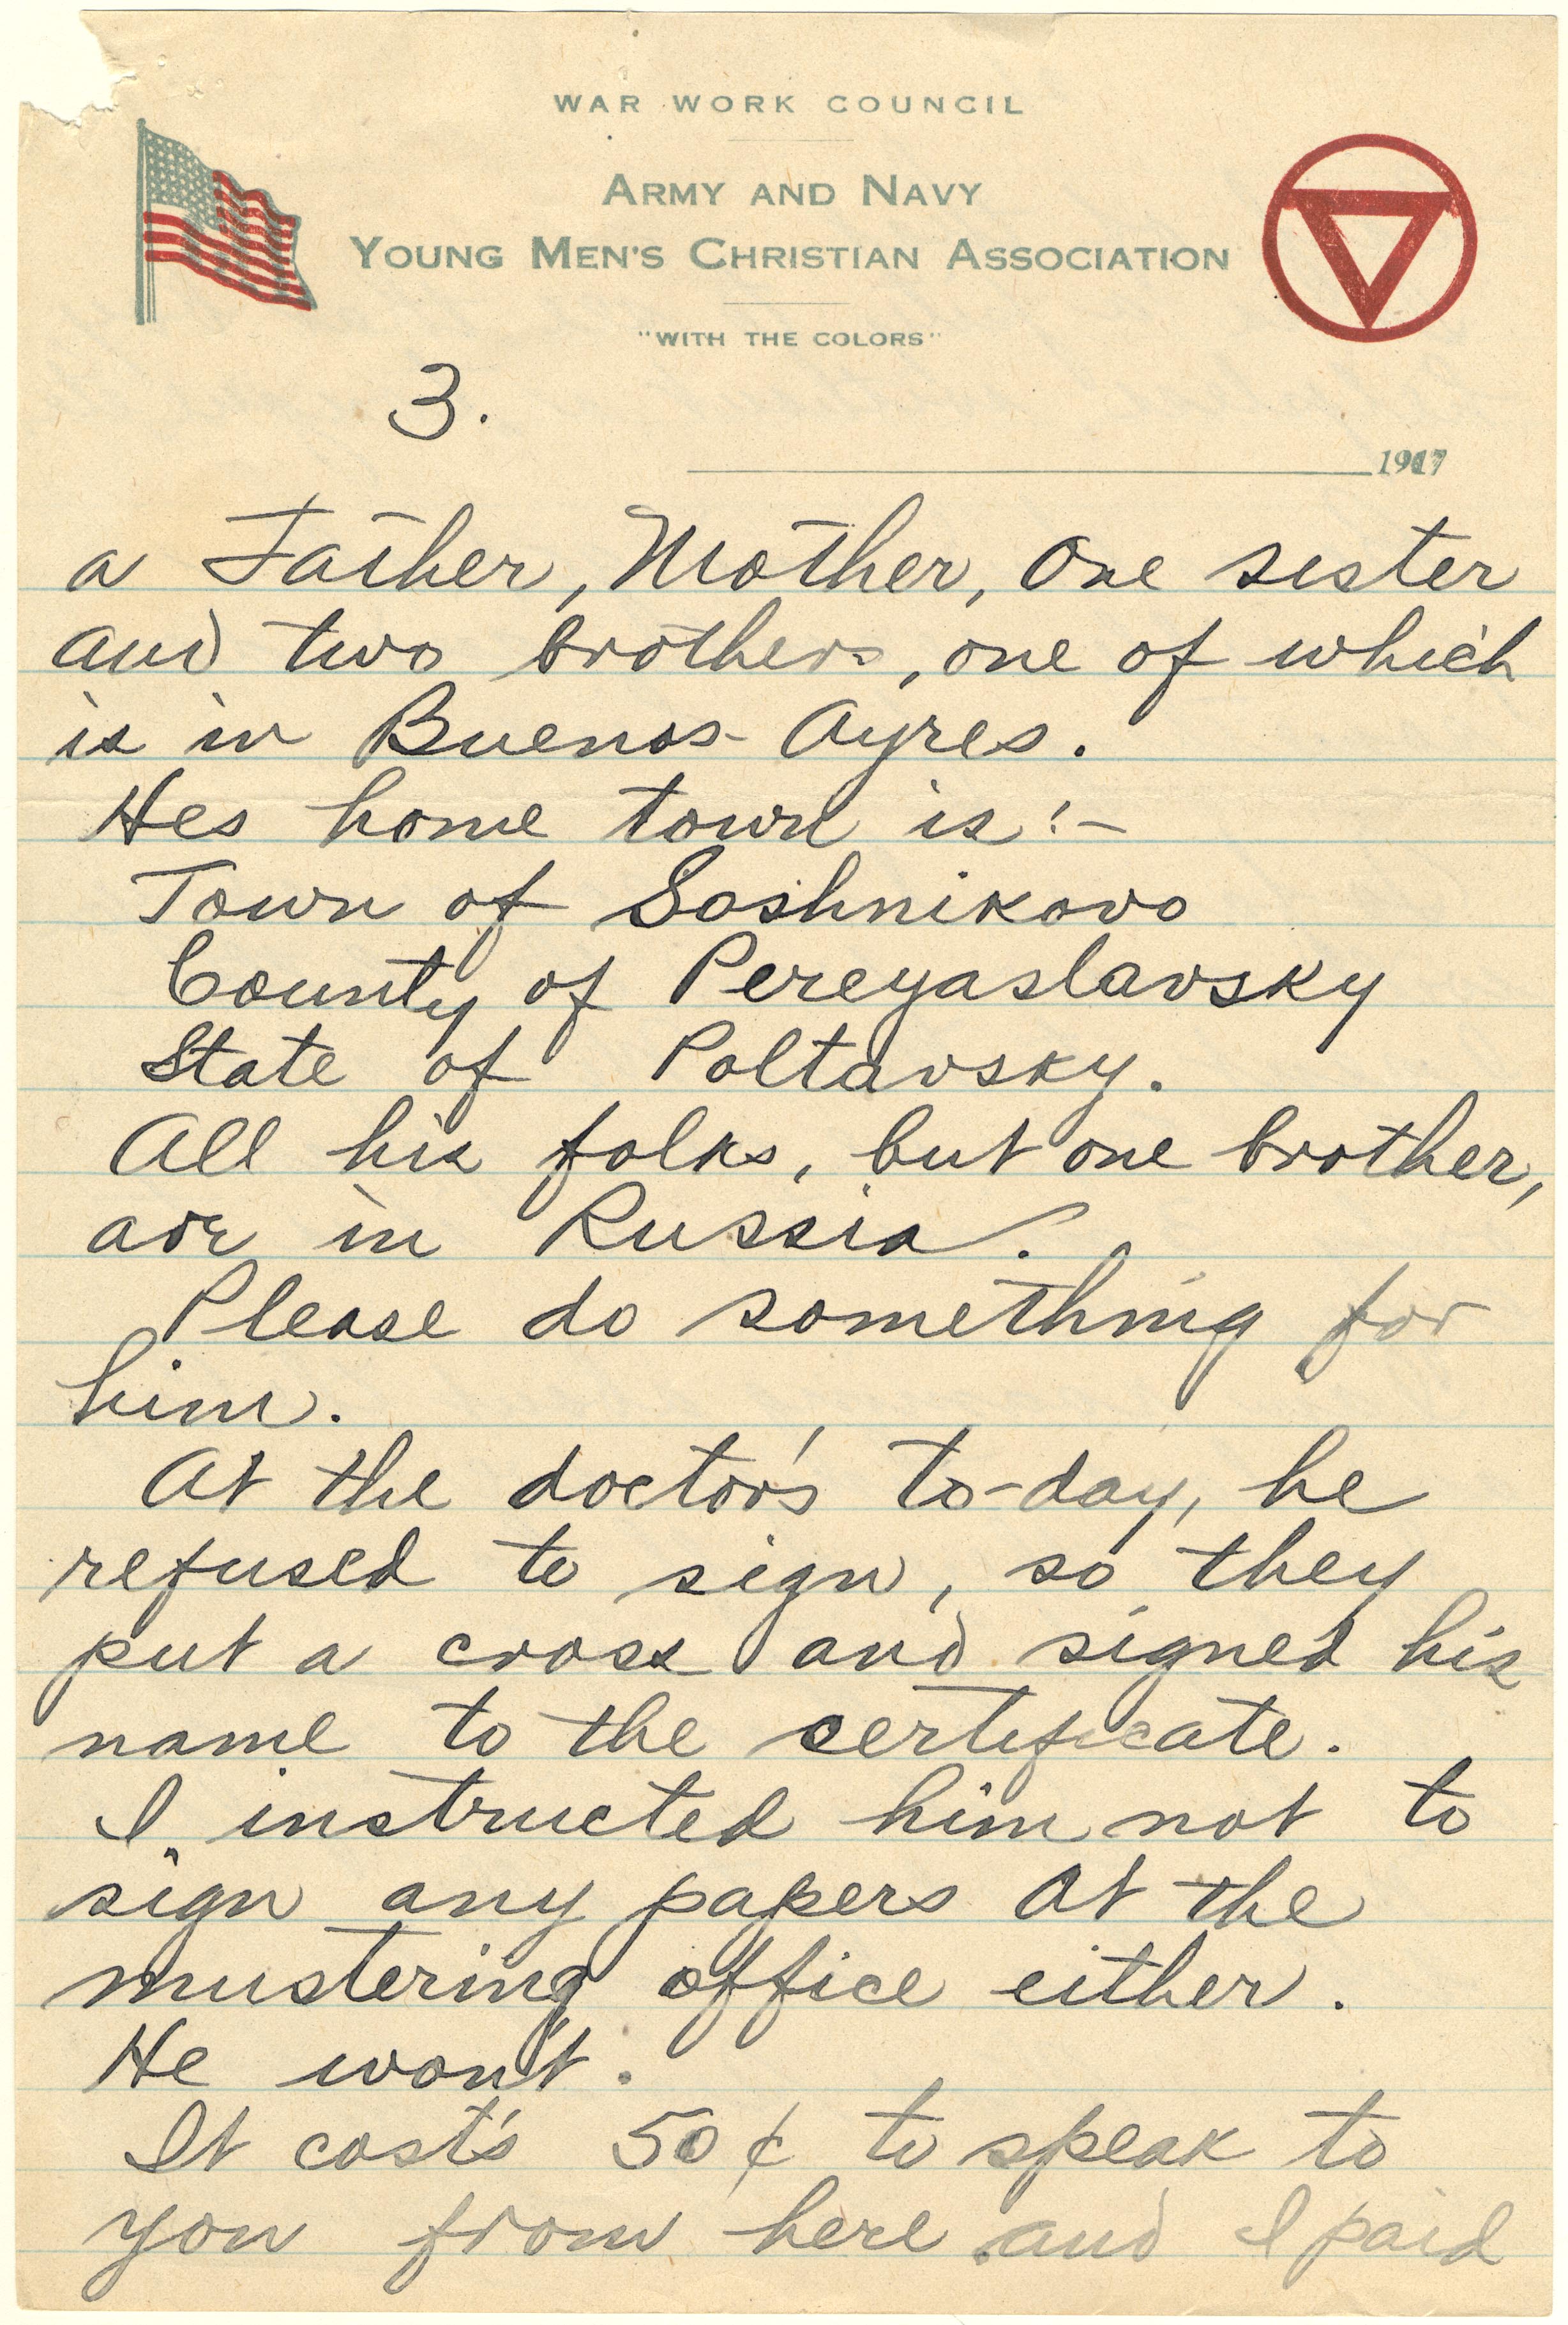 WAR WORK COUNCIL
ARMY AND NAVY
YOUNG MEN'S CHRISTIAN ASSOCIATION
"WITH THE COLORS"
3.
1917
a Father, Mother, One sister
and two brothers, one of which
is in Buenos-Ayres.
Hes home town is:-
Town of Soshnikovo
County of Pereyaslavsky
State of Poltavsky.
All his folks, but one brother,
are in Russia.
Please do something for
him.
At the doctor's to-day, he
refused to sign, so they
put a cross and signed his
name to the certificate.
I instructed him not to
sign any papers at the
mustering office either.
He won't.
It cost's 50¢ to speak to
you from here and I paid